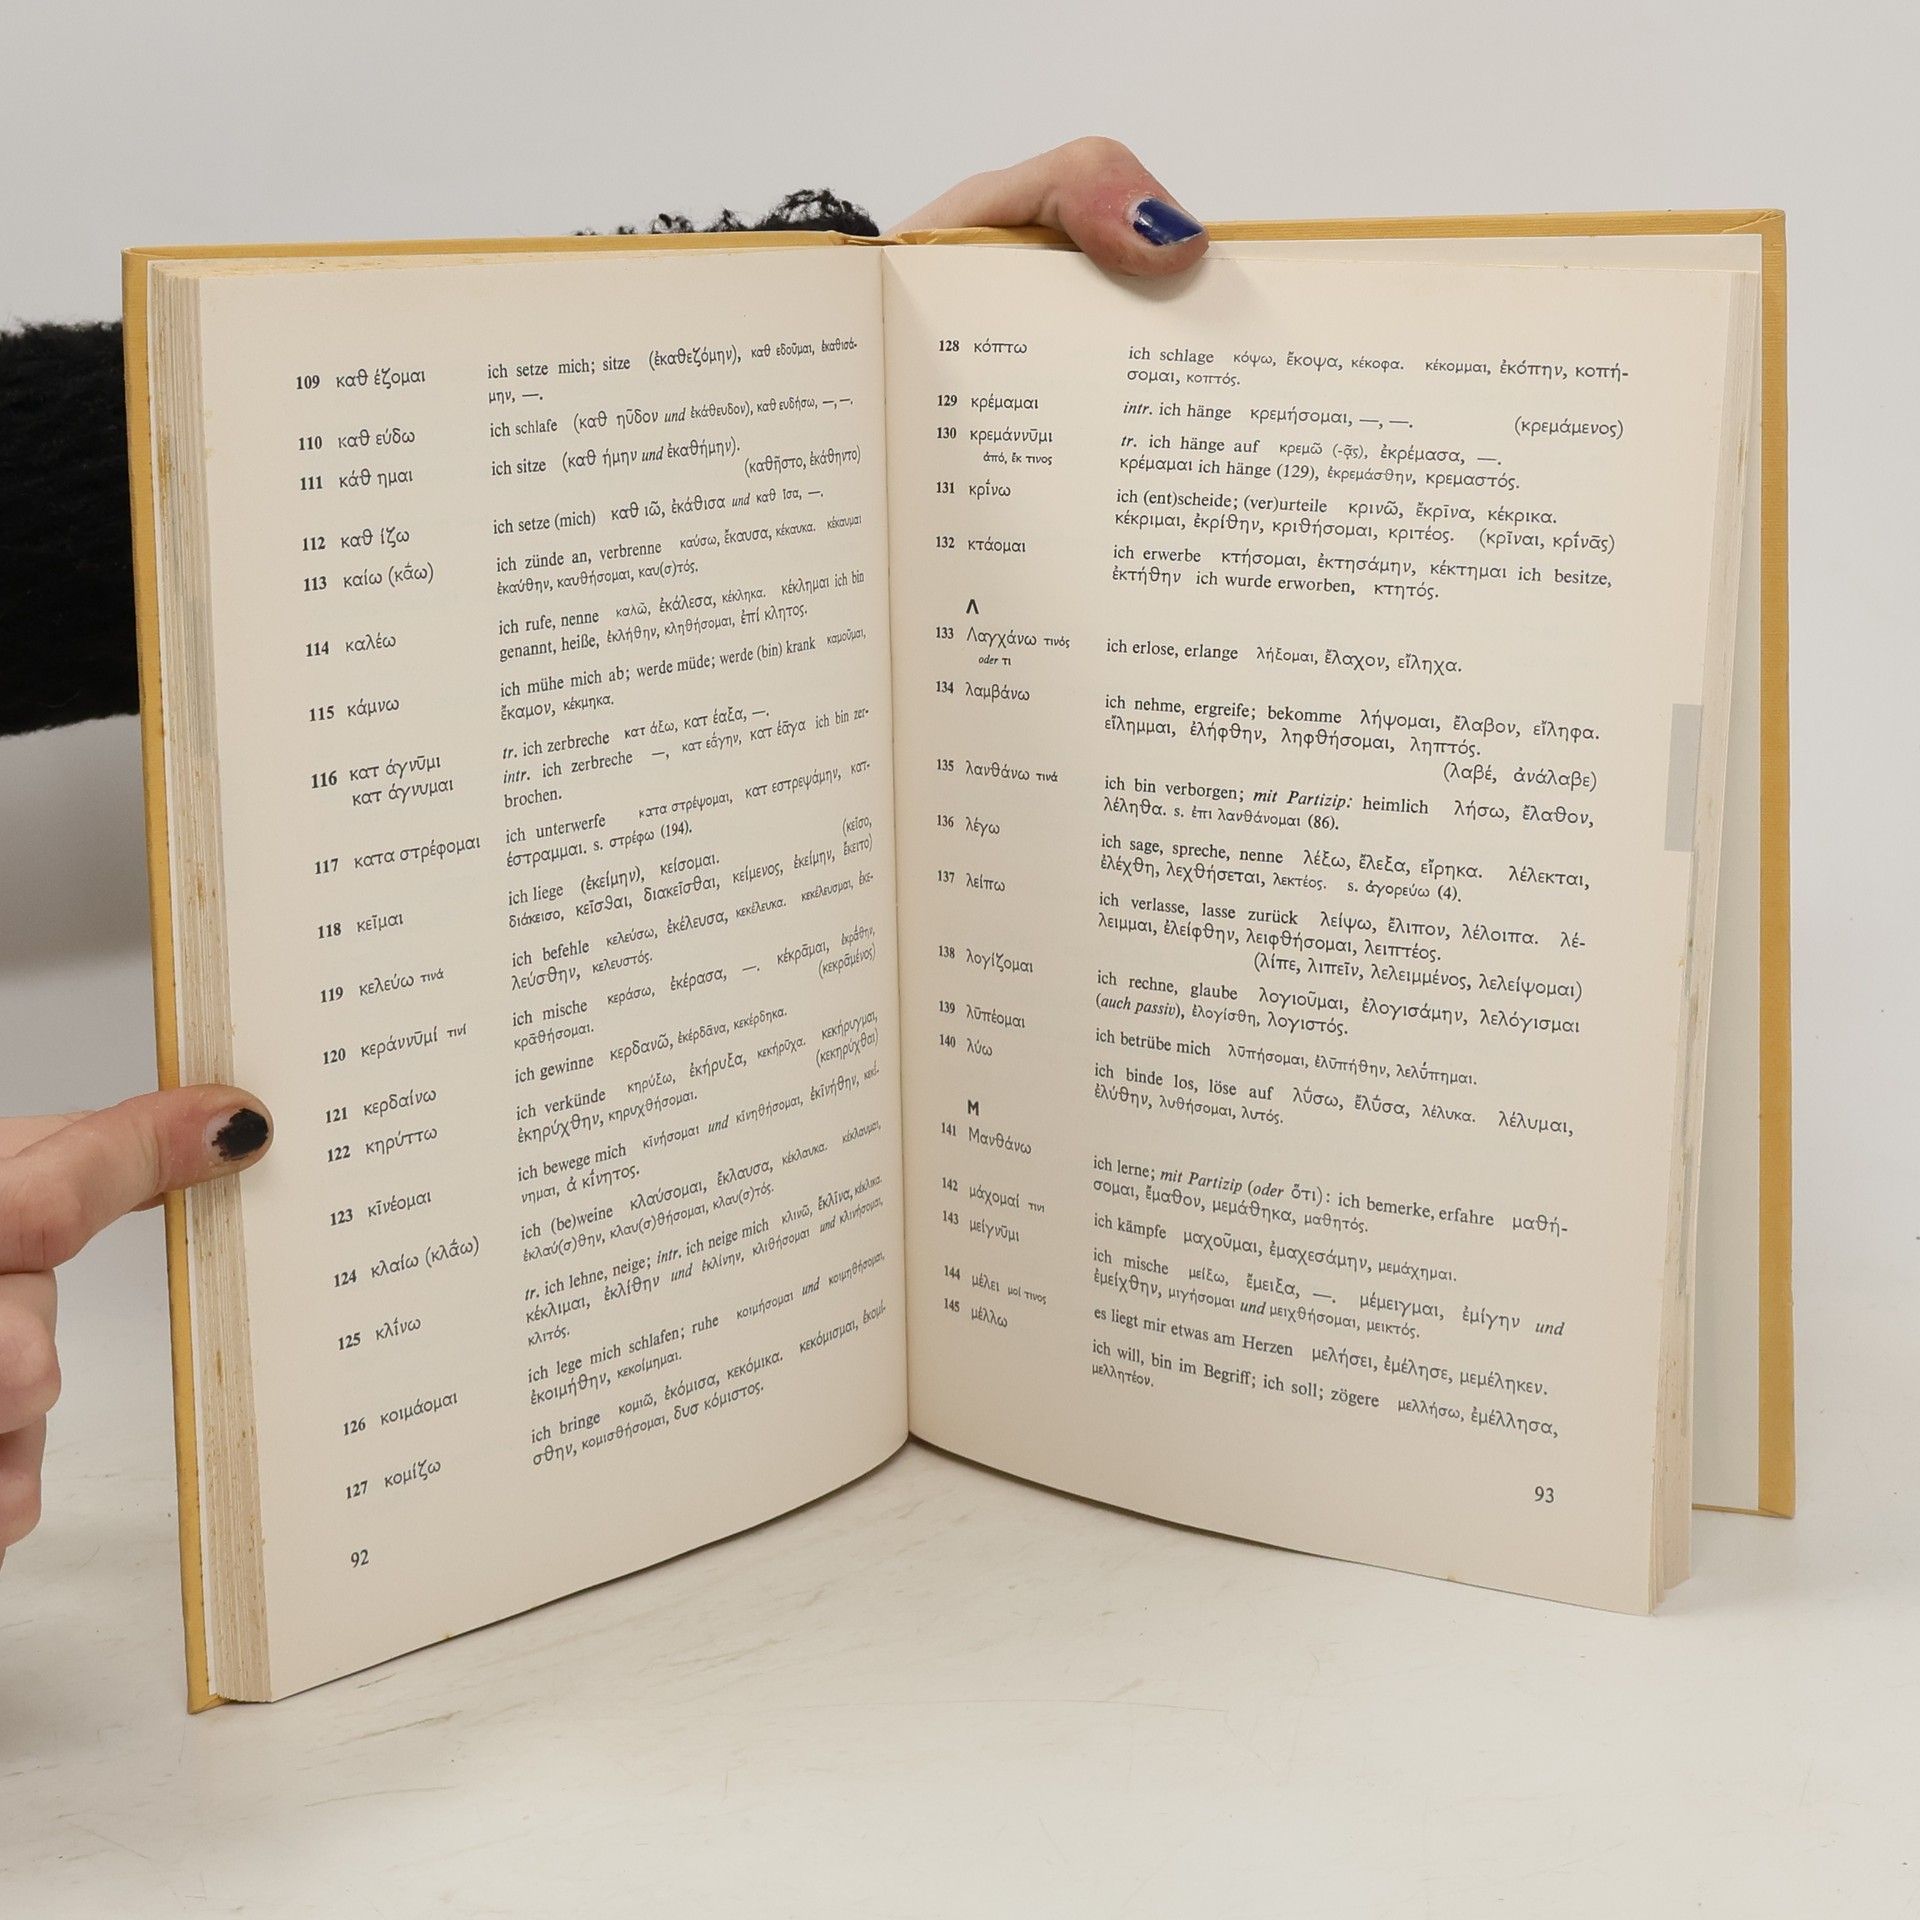 109 καθ έζομαι ich setze mich; sitze (ἐκαθεζόμην), καθ εδοῦμαι, ἐκαθισά-
μην, —.
110 καθ εύδω ich schlafe (καθ ηῦδον und ἐκάθευδον), καθ ευδήσω, —,—.
111 κάθ ημαι ich sitze (καθ ήμην und ἐκαθήμην).
(καθῆστο, ἐκάθηντο)
112 καθ ίζω ich setze (mich) καθ ιῶ, ἐκάθισα und καθ ῖσα, —.
113 καίω (κᾱ́ω) ich zünde an, verbrenne καύσω, ἔκαυσα, κέκαυκα. κέκαυμαι
ἐκαύθην, καυθήσομαι, καυ(σ)τός.
114 καλέω ich rufe, nenne καλῶ, ἐκάλεσα, κέκληκα. κέκλημαι ich bin
genannt, heiße, ἐκλήθην, κληθήσομαι, ἐπί κλητος.
115 κάμνω ich mühe mich ab; werde müde; werde (bin) krank καμοῦμαι,
ἔκαμον, κέκμηκα.
116 κατ άγνῡμι tr. ich zerbreche κατ άξω, κατ έαξα, —.
κατ άγνυμαι intr. ich zerbreche —, κατ εᾱ́γην, κατ έᾱγα ich bin zer-
brochen.
117 κατα στρέφομαι ich unterwerfe κατα στρέψομαι, κατ εστρεψάμην, κατ-
έστραμμαι. s. στρέφω (194).
118 κεῖμαι ich liege (ἐκείμην), κείσομαι. (κεῖσο,
διάκεισο, κεῖσθαι, διακεῖσθαι, κείμενος, ἐκείμην, ἔκειτο)
119 κελεύω τινά ich befehle κελεύσω, ἐκέλευσα, κεκέλευκα. κεκέλευσμαι, ἐκε-
λεύσθην, κελευστός.
120 κεράννῡμί τινί ich mische κεράσω, ἐκέρασα, —. κέκρᾱμαι, ἐκρᾱ́θην,
κρᾱθήσομαι. (κεκρᾱμένος)
121 κερδαίνω ich gewinne κερδανῶ, ἐκέρδᾱνα, κεκέρδηκα.
122 κηρύττω ich verkünde κηρύξω, ἐκήρυξα, κεκήρῡχα. κεκήρυγμαι,
ἐκηρύχθην, κηρυχθήσομαι. (κεκηρύχθαι)
123 κῑνέομαι ich bewege mich κῑνήσομαι und κῑνηθήσομαι, ἐκῑνήθην, κεκί-
νημαι, ἀ κῑ́νητος.
124 κλαίω (κλᾱ́ω) ich (be)weine κλαύσομαι, ἔκλαυσα, κέκλαυκα. κέκλαυμαι,
ἐκλαύ(σ)θην, κλαυ(σ)θήσομαι, κλαυ(σ)τός.
125 κλῑ́νω tr. ich lehne, neige; intr. ich neige mich κλινῶ, ἔκλῑνα, κέκλικα.
κέκλιμαι, ἐκλίθην und ἐκλίνην, κλιθήσομαι und κλινήσομαι,
κλιτός.
126 κοιμάομαι ich lege mich schlafen; ruhe κοιμήσομαι und κοιμηθήσομαι,
ἐκοιμήθην, κεκοίμημαι.
127 κομίζω ich bringe κομιῶ, ἐκόμισα, κεκόμικα. κεκόμισμαι, ἐκομί-
σθην, κομισθήσομαι, δυσ κόμιστος.
92
128 κόπτω ich schlage κόψω, ἔκοψα, κέκοφα. κέκομμαι, ἐκόπην, κοπή-
σομαι, κοπτός.
129 κρέμαμαι intr. ich hänge κρεμήσομαι, —, —. (κρεμάμενος)
130 κρεμάννῡμι tr. ich hänge auf κρεμῶ (-ᾷς), ἐκρέμασα, —.
ἀπό, ἔκ τινος κρέμαμαι ich hänge (129), ἐκρεμάσθην, κρεμαστός.
131 κρῑ́νω ich (ent)scheide; (ver)urteile κρινῶ, ἔκρῑνα, κέκρικα.
κέκριμαι, ἐκρίθην, κριθήσομαι, κριτέος. (κρῖναι, κρῑ́νᾱς)
132 κτάομαι ich erwerbe κτήσομαι, ἐκτησάμην, κέκτημαι ich besitze,
ἐκτήθην ich wurde erworben, κτητός.
Λ
133 Λαγχάνω τινός ich erlose, erlange λήξομαι, ἔλαχον, εἴληχα.
oder τι
134 λαμβάνω ich nehme, ergreife; bekomme λήψομαι, ἔλαβον, εἴληφα.
εἴλημμαι, ἐλήφθην, ληφθήσομαι, ληπτός.
(λαβέ, ἀνάλαβε)
135 λανθάνω τινά ich bin verborgen; mit Partizip: heimlich λήσω, ἔλαθον,
λέληθα. s. ἐπι λανθάνομαι (86).
136 λέγω ich sage, spreche, nenne λέξω, ἔλεξα, εἴρηκα. λέλεκται,
ἐλέχθη, λεχθήσεται, λεκτέος. s. ἀγορεύω (4).
137 λείπω ich verlasse, lasse zurück λείψω, ἔλιπον, λέλοιπα. λέ-
λειμμαι, ἐλείφθην, λειφθήσομαι, λειπτέος.
(λίπε, λιπεῖν, λελειμμένος, λελείψομαι)
138 λογίζομαι ich rechne, glaube λογιοῦμαι, ἐλογισάμην, λελόγισμαι
(auch passiv), ἐλογίσθη, λογιστός.
139 λῡπέομαι ich betrübe mich λῡπήσομαι, ἐλῡπήθην, λελῡ́πημαι.
140 λύω ich binde los, löse auf λῡ́σω, ἔλῡσα, λέλυκα. λέλυμαι,
ἐλύθην, λυθήσομαι, λυτός.
Μ
141 Μανθάνω ich lerne; mit Partizip (oder ὅτι): ich bemerke, erfahre μαθή-
σομαι, ἔμαθον, μεμάθηκα, μαθητός.
142 μάχομαί τινι ich kämpfe μαχοῦμαι, ἐμαχεσάμην, μεμάχημαι.
143 μείγνῡμι ich mische μείξω, ἔμειξα, —. μέμειγμαι, ἐμίγην und
ἐμείχθην, μιγήσομαι und μειχθήσομαι, μεικτός.
144 μέλει μοί τινος es liegt mir etwas am Herzen μελήσει, ἐμέλησε, μεμέληκεν.
145 μέλλω ich will, bin im Begriff; ich soll; zögere μελλήσω, ἐμέλλησα,
μελλητέον.
93